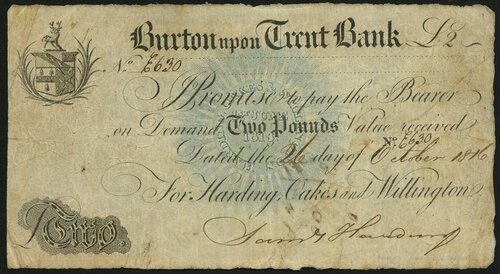 Burton upon Trent Bank £2
No. E630
I Promise to pay the Bearer
on Demand Two Pounds Value received
No. E630
Dated the 26 day of October 1816
For Harding, Oakes and Willington
Two.
Saml Harding